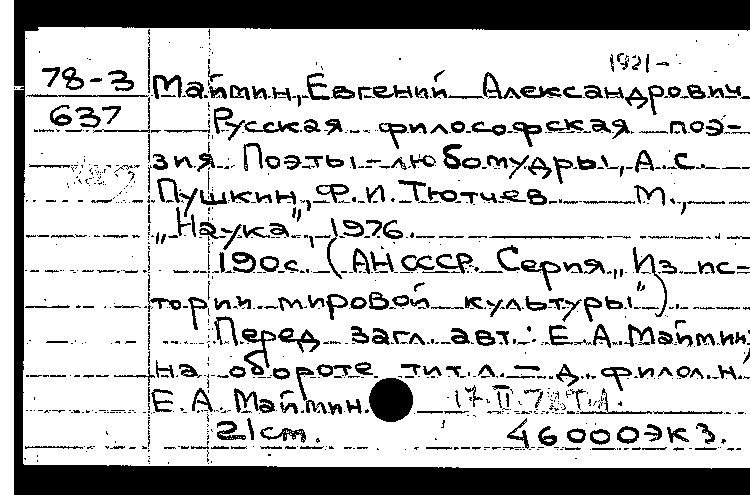 1921-
78-3 Маймин, Евгений Александрович
637 Русская философская поэ-
зия Поэты-любомудры, А.С.
Пушкин, Ф.И. Тютчев М.,
„Наука", 1976.
190с. (АН СССР. Серия „Из ис-
тории мировой культуры").
Перед загл. авт.: Е.А. Маймин,
на обороте тит.л. - д. филол.н.
Е.А. Маймин.
21см. 46000экз.